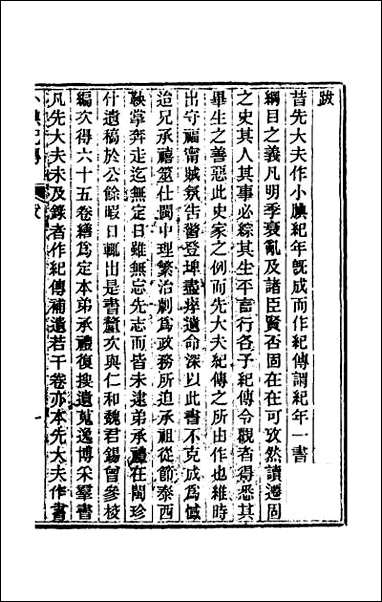 跋
昔先大夫作小腆紀年既成而作紀傳謂紀年一書
綱目之義凡明季衰亂及諸臣賢否固在在可攷然讀遷固
之史其人其事必綜其生平畜行各予紀傳令觀者得悉其
畢生之善惡此史家之例而先大夫紀傳之所由作也維時
出守福甯賊氛告警登埤盡瘁遺命深以此書不克成爲憾
治兄承禧筮仕閩中理繁治劇爲政務所迫承祖從節泰西
鞅掌奔走迄無定日雖無忘先志而皆未逮弟承禮在閩珍
什遺稿於公餘暇日輒出是書釐次與仁和魏君錫曾參校
編次得六十五卷繕爲定本弟承禮復搜遺蒐逸博采羣書
凡先大夫未及錄者作紀傳補遺若干卷亦本先大夫作書
小腆紀傳
跋
一